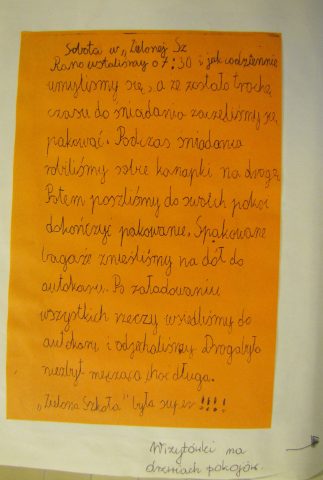 Sobota w „Zielonej Sz
Rano wstaliśmy o 7:30 i jak codziennie
umyliśmy się, a że zostało trochę
czasu do śniadania zaczeliśmy się
pakować. Podczas śniadania
robiliśmy sobie kanapki na drogę.
Potem poszliśmy do swoich pokoi
dokończyć pakowanie. Spakowane
bagaże znieśliśmy na dół do
autokaru. Po załadowaniu
wszystkich rzeczy wsiedliśmy do
autokaru i odjechaliśmy. Droga była
niezbyt męcząca choć długa.
„Zielona Szkoła" była super !!!!
Wizytówki na
drzwiach pokojów.